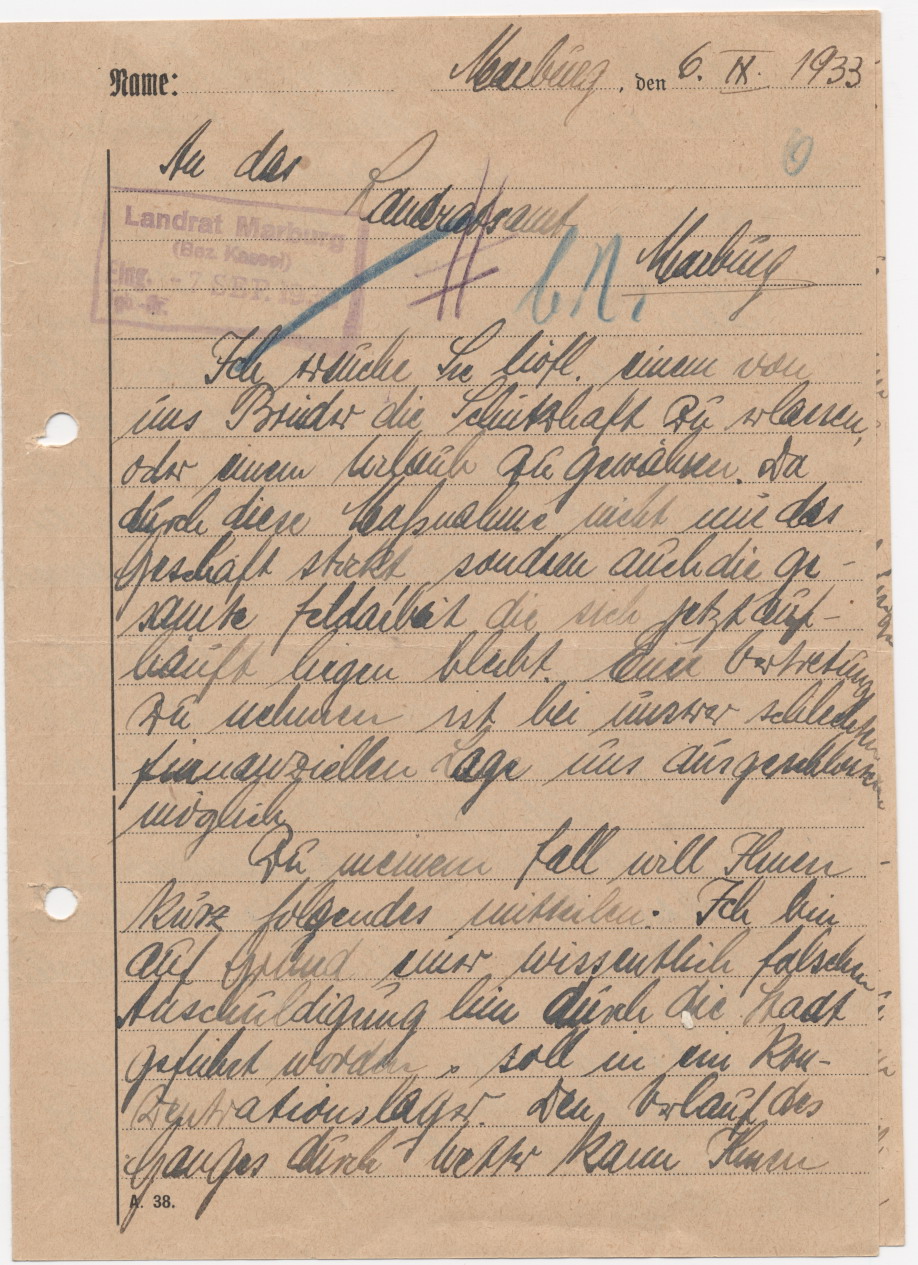 Name: Marburg, den 6. IX. 1933
An das
Landratsamt
Marburg
Landrat Marburg
(Bez. Kassel)
Eing. -7. SEP. 19
b.R.
Ich ersuche Sie höfl. einem von
uns Brüder die Schutzhaft zu erlassen,
oder einem Urlaub zu gewähren. Da
durch diese Maßnahme nicht nur das
Geschäft stockt, sondern auch die ge-
samte Feldarbeit die sich jetzt auf-
häuft liegen bleibt. Eine Vertretung
zu nehmen ist bei unserer schlechten
finanziellen Lage uns ausgeschlossen
möglich.
Zu meinem Fall will Ihnen
kurz folgendes mitteilen. Ich bin
auf Grund einer wissentlich falschen
Anschuldigung hin durch die Stadt
geführt worden, soll in ein Kon-
zentrationslager. Den Verlauf des
Ganges durch Wetter kann Ihnen
A. 38.